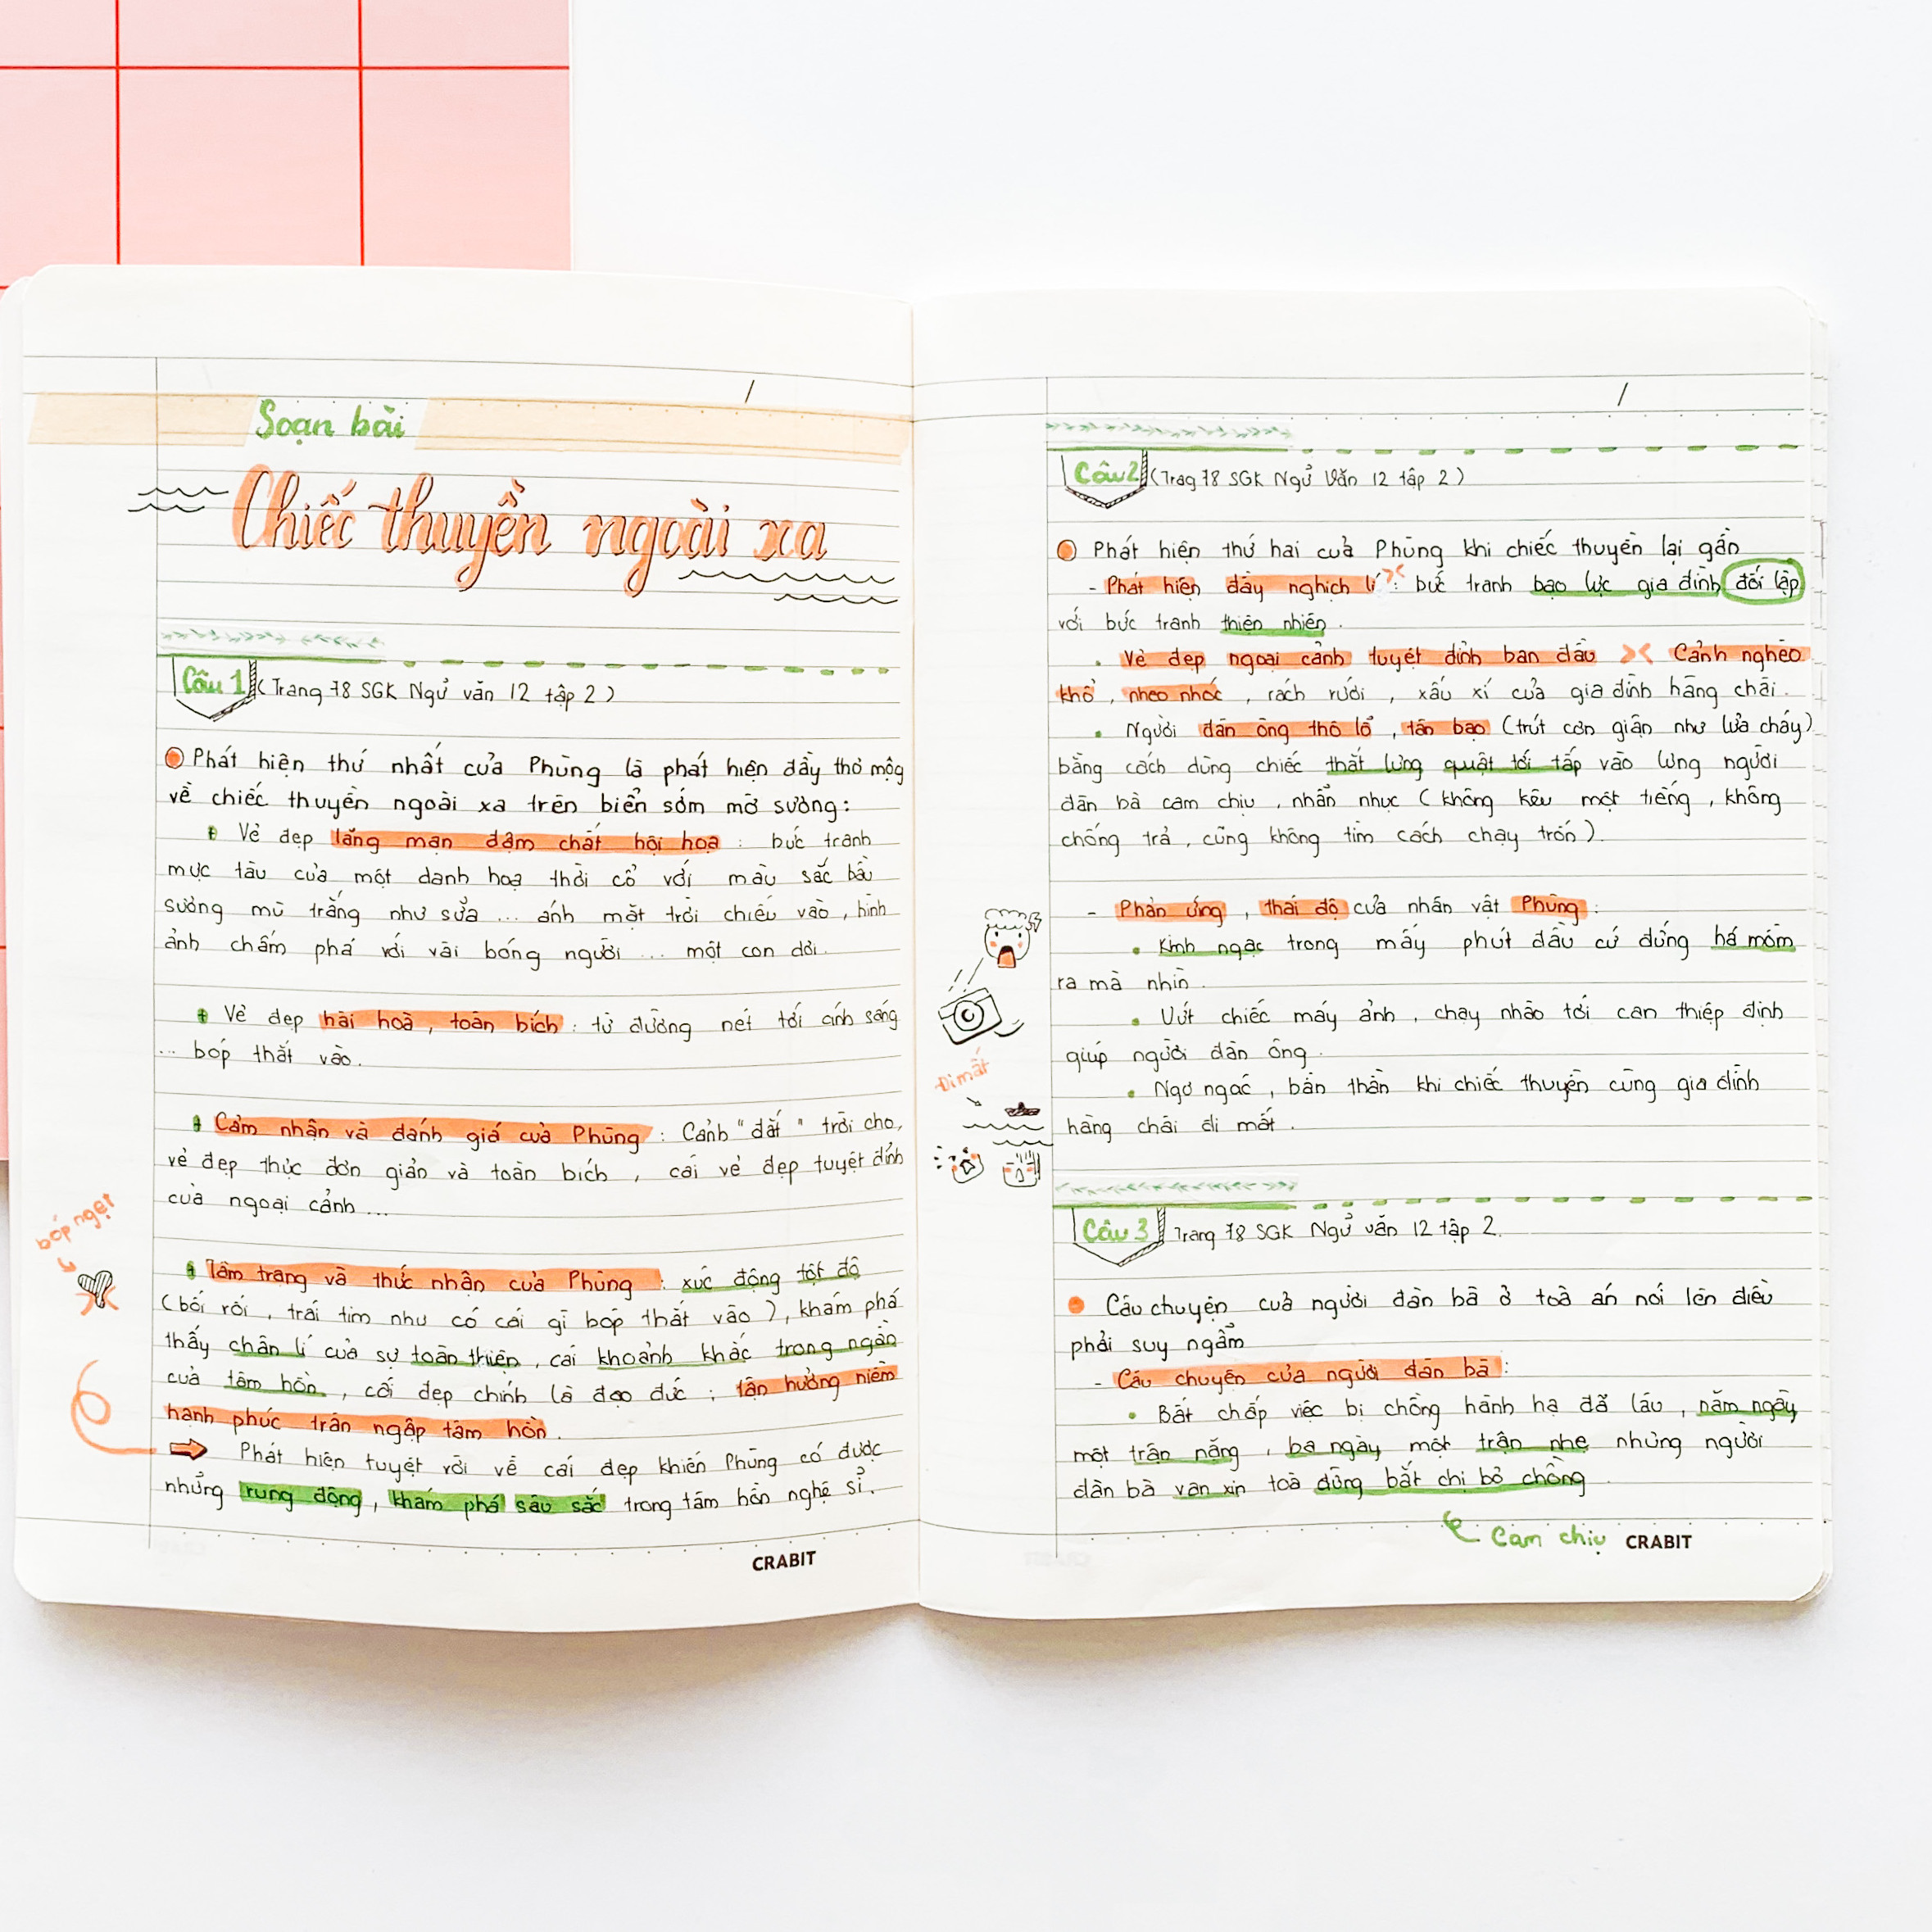 Soạn bài
Chiếc thuyền ngoài xa
Câu 1 (Trang 78 SGK Ngữ văn 12 tập 2)
Phát hiện thứ nhất của Phùng là phát hiện đầy thơ mộng
về chiếc thuyền ngoài xa trên biển sớm mờ sương:
+ Vẻ đẹp lãng mạn đậm chất hội hoạ : bức tranh
mực tàu của một danh hoạ thời cổ với màu sắc bầu
sương mù trắng như sữa ... ánh mặt trời chiếu vào, hình
ảnh chấm phá với vài bóng người ... một con dơi.
+ Vẻ đẹp hài hoà, toàn bích : từ đường nét tới ánh sáng
... bóp thắt vào.
+ Cảm nhận và đánh giá của Phùng : Cảnh "đắt" trời cho,
vẻ đẹp thực đơn giản và toàn bích , cái vẻ đẹp tuyệt đỉnh
của ngoại cảnh ...
bóp nghẹt
+ Tâm trạng và thức nhận của Phùng : xúc động tột độ
(bối rối, trái tim như có cái gì bóp thắt vào), khám phá
thấy chân lí của sự toàn thiện, cái khoảnh khắc trong ngần
của tâm hồn, cái đẹp chính là đạo đức ; tận hưởng niềm
hạnh phúc tràn ngập tâm hồn.
Phát hiện tuyệt vời về cái đẹp khiến Phùng có được
những rung động, khám phá sâu sắc trong tâm hồn nghệ sĩ.
CRABIT
Câu 2 (Trag 78 SGK Ngữ Văn 12 tập 2)
Phát hiện thứ hai của Phùng khi chiếc thuyền lại gần
- Phát hiện đầy nghịch lí : bức tranh bạo lực gia đình đối lập
với bức tranh thiên nhiên.
. Vẻ đẹp ngoại cảnh tuyệt đỉnh ban đầu >< Cảnh nghèo
khổ, nheo nhóc, rách rưới, xấu xí của gia đình hàng chài.
. Người đàn ông thô lỗ, tàn bạo (trút cơn giận như lửa cháy)
bằng cách dùng chiếc thắt lưng quật tới tấp vào lưng người
đàn bà cam chịu, nhẫn nhục (không kêu một tiếng, không
chống trả, cũng không tìm cách chạy trốn).
- Phản ứng, thái độ của nhân vật Phùng :
. Kinh ngạc trong mấy phút đầu cứ đứng há mồm
ra mà nhìn.
. Vứt chiếc máy ảnh, chạy nhào tới can thiệp định
giúp người đàn ông.
Đi mất
. Ngơ ngác, bần thần khi chiếc thuyền cùng gia đình
hàng chài đi mất.
Câu 3 Trang 78 SGK Ngữ văn 12 tập 2.
Câu chuyện của người đàn bà ở toà án nói lên điều
phải suy ngẫm
- Câu chuyện của người đàn bà :
. Bất chấp việc bị chồng hành hạ đã lâu, năm ngày
một trận nặng, ba ngày một trận nhẹ nhưng người
đàn bà van xin toà đừng bắt chị bỏ chồng.
Cam chịu
CRABIT